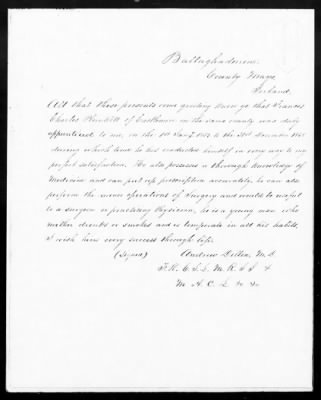 Ballaghadereen
County Mayo
Ireland.
All that these presents come greeting know ye that Frances
Charles of in the same county was duly
apprenticed to me, on the 1st 1857 to the 31st December 1861
during which time he has conducted himself in every way to my
perfect satisfaction. He also possesses a thorough knowledge of
Medicine and can put up prescription accurately, he can also
perform the minor operations of Surgery and would be useful
to a surgeon or practicing Physician, he is a young man who
neither drinks or smokes and is temperate in all his habits,
I wish him every success through life.
(Signed) Andrew Dillon M.D.
F.R.C.S.I. M.R.S.S &
M. A. C. L. &c &c